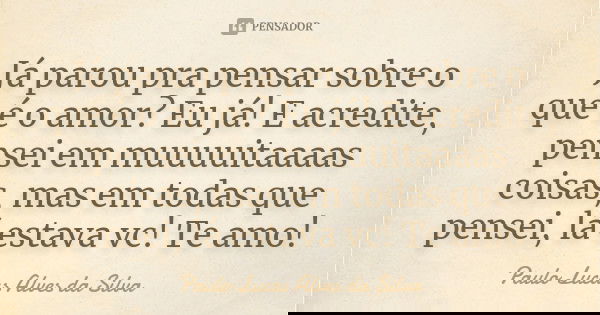 PENSADOR
Já parou pra pensar sobre o
que é o amor? Eu já! E acredite,
pensei em muuuuitaaaas
coisas, mas em todas que
pensei, lá estava vc! Te amo!
Paulo Lucas Alves da Silva